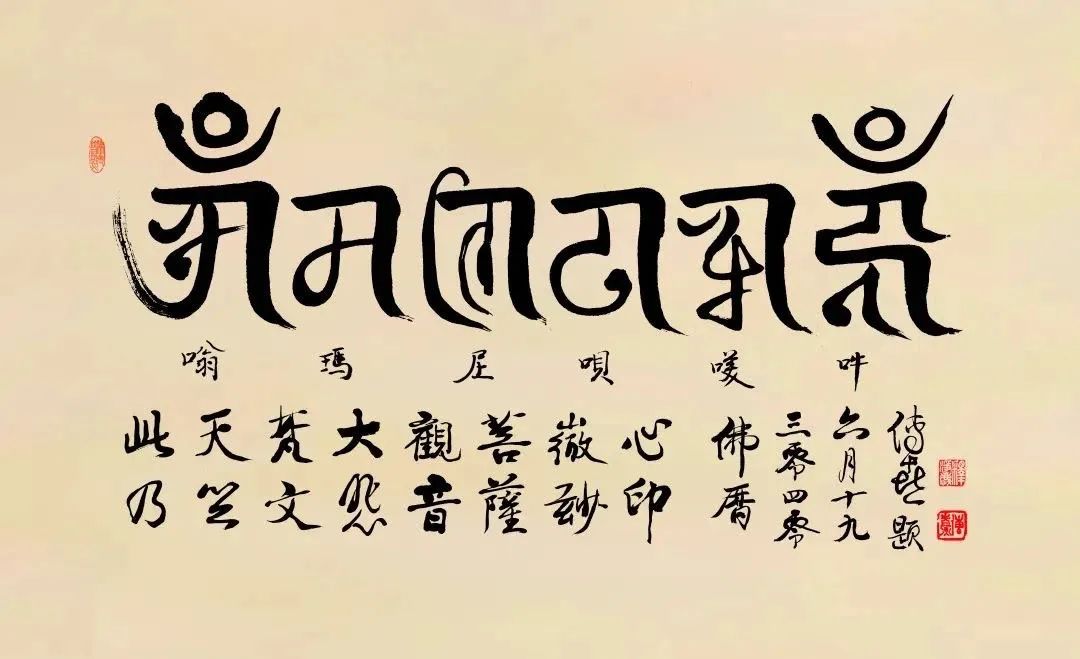 𑖌𑖼 𑖦 𑖜𑖰 𑖢 𑖟𑖿𑖦𑖸 𑖮𑖳𑖽
嗡 瑪 尼 唄 吽
此乃
天竺
梵文
大悲
觀音
菩薩
微妙
心印
佛曆
三零四零
六月十九
傅喜題